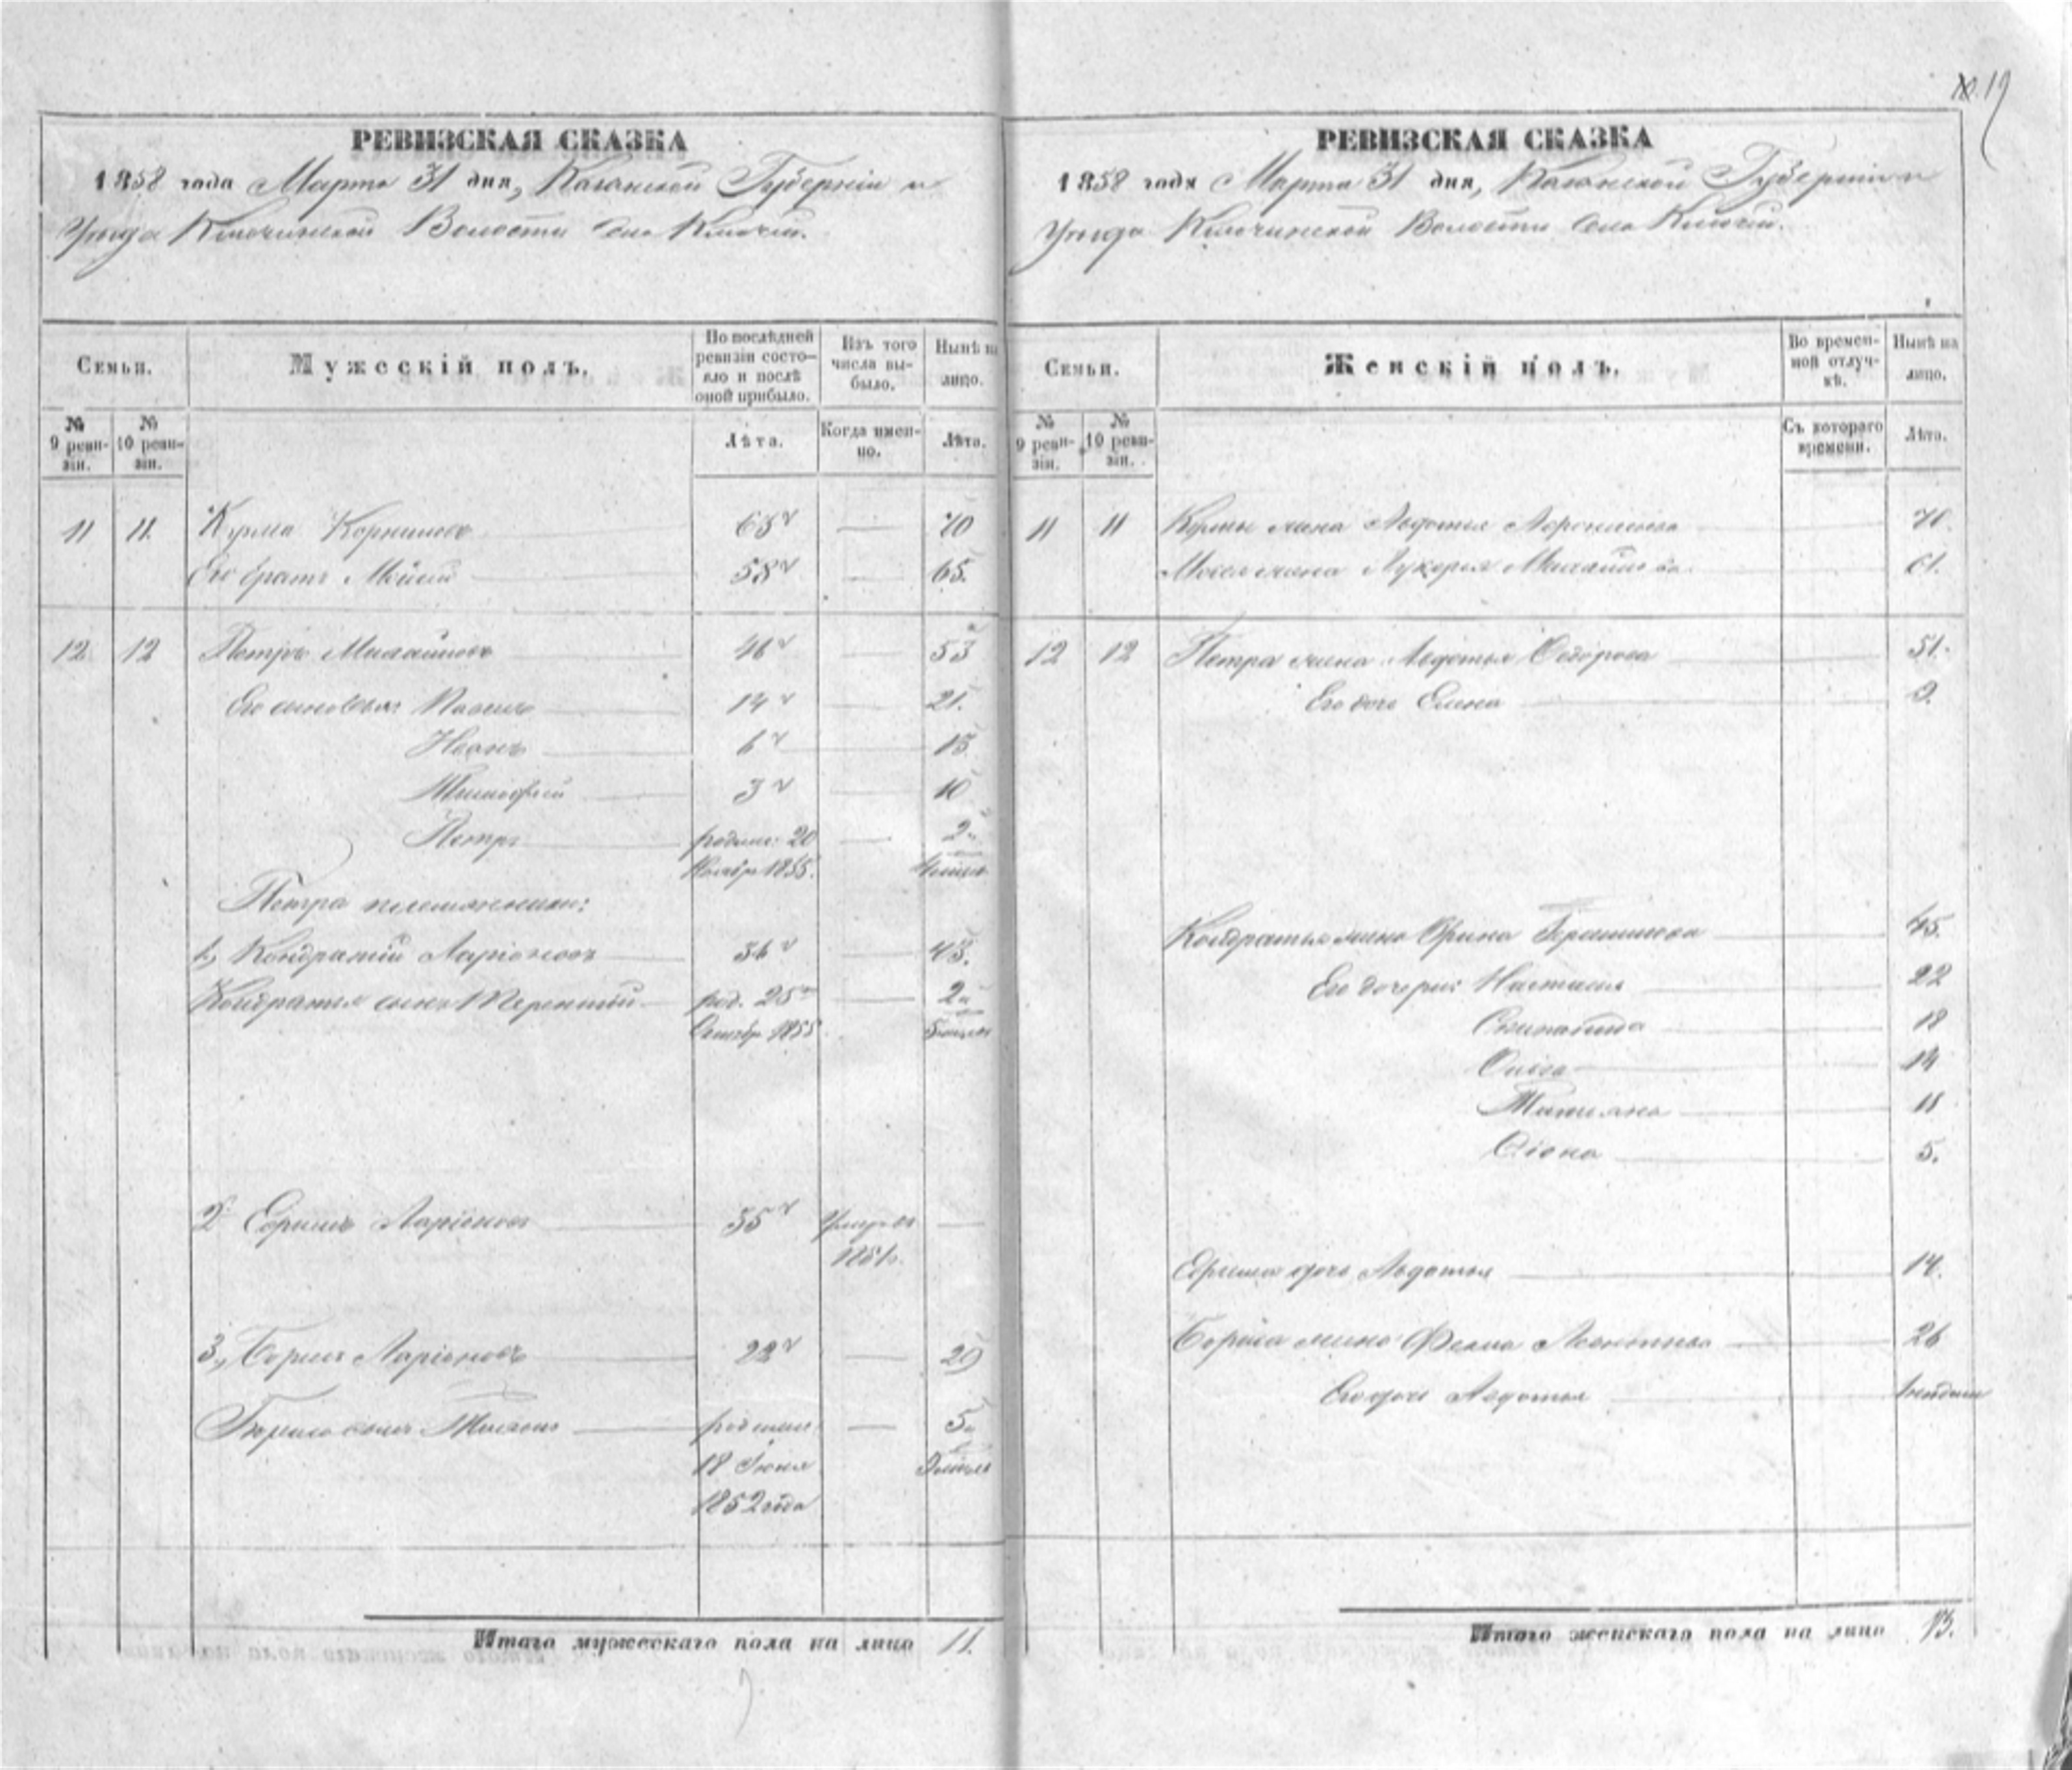 19
РЕВИЗСКАЯ СКАЗКА
1858 года Марта 31 дня, Казанской Губерніи и
Уѣзда Ключинской Волости Села Ключей.
Семьи.
Мужескій полъ.
По послѣдней ревизіи состояло и послѣ оной прибыло.
Изъ того числа выбыло.
Нынѣ на лицо.
№ 9 ревизіи.
№ 10 ревизіи.
Лѣта.
Когда именно.
Лѣта.
11 11 Кузма Корниловъ 63 — 70
Его братъ Мойсей 58 — 65.
12 12 Петръ 46 — 53
Его сыновья: 14 — 21.
Иванъ 6 — 13
Тимофей 3 — 10
Петръ родил: 20 — 2
Ноябр 1855.
Петра племянники:
1, Кондратій Ларіоновъ 36 — 43.
Кондратья сынъ Терентій род. 25 — 2
Октябр 1855
2 Ефимъ Ларіоновъ 35 —
3, Борисъ Ларіоновъ 22 — 29
Бориса сынъ — 5
18 Іюня
1852 года
Итого мужескаго пола на лицо 11.
РЕВИЗСКАЯ СКАЗКА
1858 года Марта 31 дня, Казанской Губерніи и
Уѣзда Ключинской Волости Села Ключей.
Семьи.
Женскій полъ.
Во временной отлучкѣ.
Нынѣ на лицо.
№ 9 ревизіи.
№ 10 ревизіи.
Съ котораго времени.
Лѣта.
11 11 Кузмы жена Авдотья 70.
Мосея жена Лукерья 61.
12 12 Петра жена Авдотья Ѳедорова 51.
Его дочь Елена 9.
Кондратья жена Орина 45.
Его дочери: Настасья 22
18
Ольга 14
Татьяна 11
5.
Ефима дочь Авдотья 14.
Бориса жена Фекла Леонтьева 26
Его дочь Авдотья
Итого женскаго пола на лицо 13.